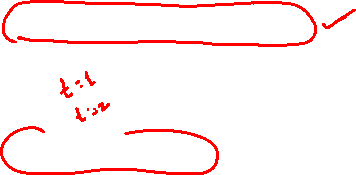 t=1
t=2